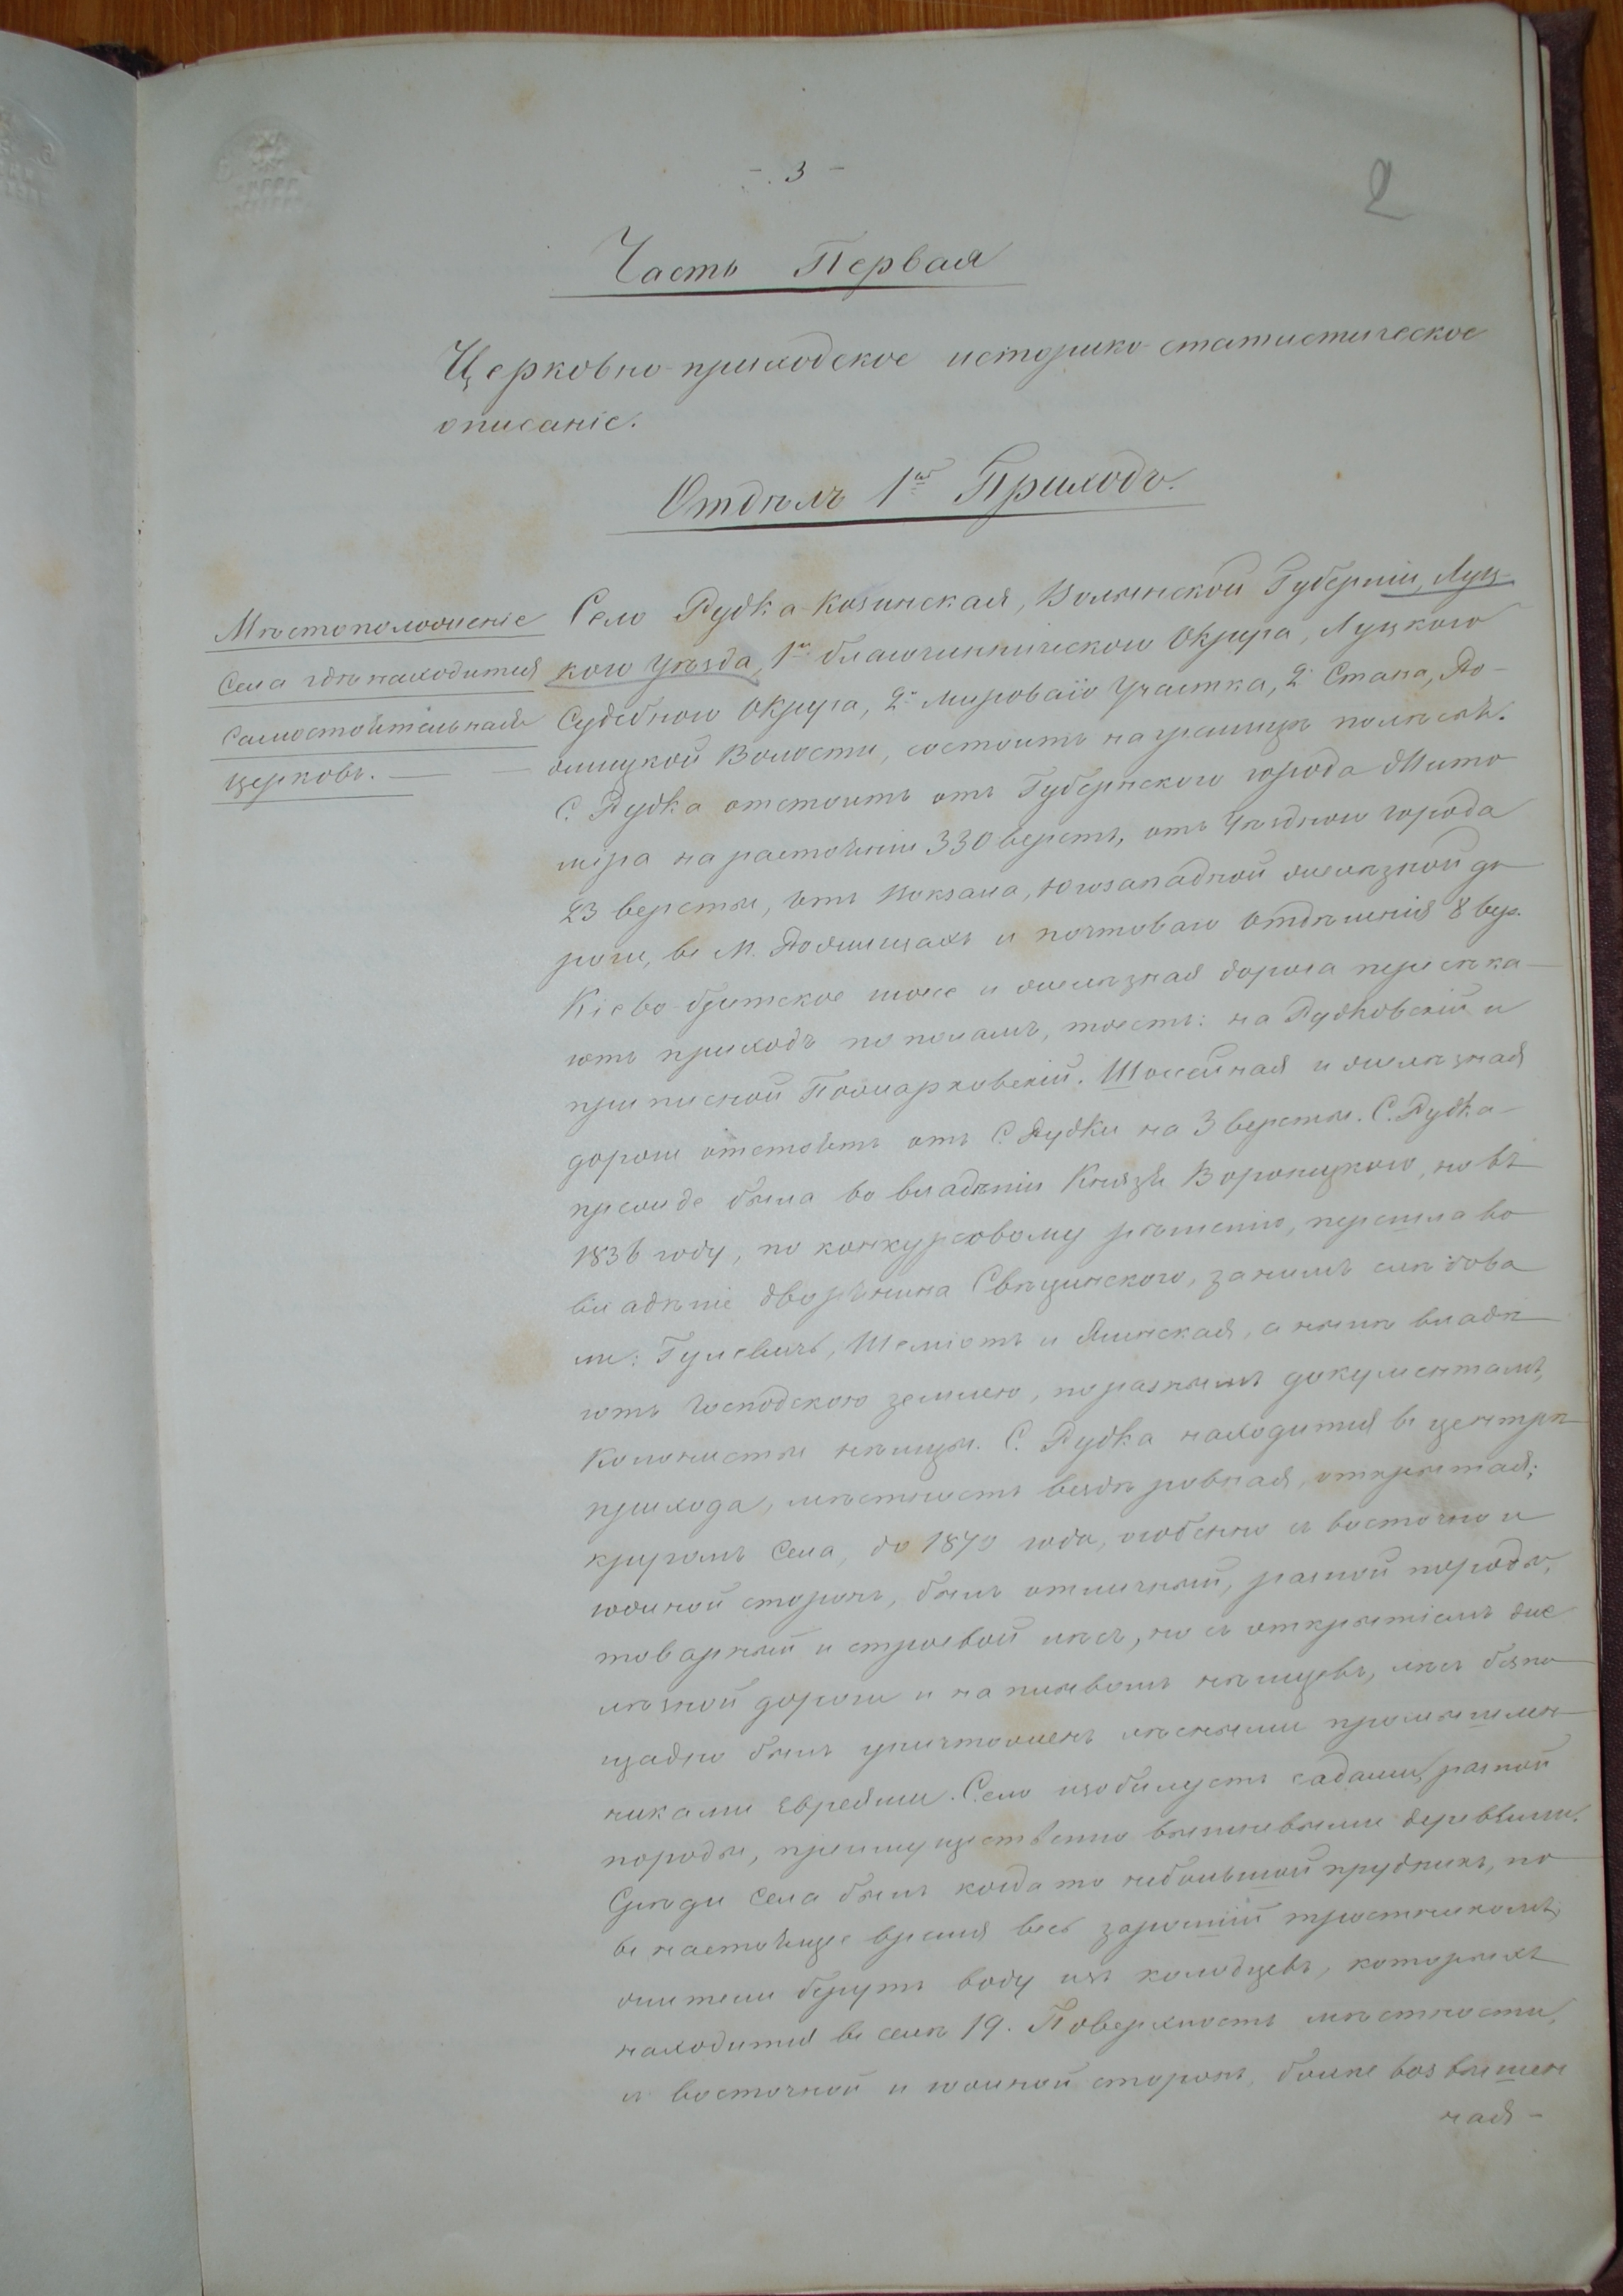 - 3 -
2
Часть Первая
Церковно-приходское историко-статистическое
описаніе.
Отдѣлъ 1й Приходъ.
Мѣстоположеніе
Села гдѣ находится
Самостоятельная
церковь.
Село Рудка-Козинская, Волынской Губерніи, Луц-
кого уѣзда, 1го благочинническаго Округа, Луцкого
Судебного Округа, 2го Мироваго Участка, 2го Стана, Ро-
жищкой Волости, состоитъ на границѣ полѣсья.
С. Рудка отстоитъ отъ Губернского города Жито
міра на растояніи 330 верстъ, отъ Уѣздного города
23 версты, отъ Вокзала, югозападной желѣзной до
роги, въ М. Рожищахъ и почтоваго Отдѣленія 8 вер.
Кіево-брестское шосе и желѣзная дорога пересѣка-
ютъ приходъ по поламъ, тоесть: на Рудковскій и
приписной Пожарковскій. Шоссейная и желѣзная
дороги отстоятъ отъ С. Рудки на 3 версты. С. Рудка
прежде была во владѣніи Князя Воронецкого, но въ
1836 году, по конкурсовому рѣшенію, перешла во
владѣніе дворянина Свѣцинского, за нимъ слѣдова
ли: Гулевичъ, Шеміотъ и Ялинская, а нынѣ владѣ
ютъ Господскою землею, по разнымъ документамъ,
Колонисты нѣмцы. С. Рудка находится въ центрѣ
прихода, мѣстность вездѣ ровная, открытая;
кругомъ Села, до 1870 года, особенно съ восточной
южной сторонъ, былъ отличный, разной породы,
товарный и строевой лѣсъ, но съ открытіемъ же
лѣзной дороги и наплывомъ нѣмцевъ, лѣсъ безпо
щадно былъ уничтоженъ лѣсными промышлен
никами евреями. Село изобилуетъ садами, разной
породы, преимущественно вишневыми деревьями.
Среди Села былъ когда то небольшой прудникъ, но
въ настоящее время весь заросшій тростникомъ;
жители берутъ воду изъ колодцевъ, которыхъ
находится въ селѣ 19. Поверхность мѣстности,
съ восточной и южной сторонъ, болѣе возвышен
ная -